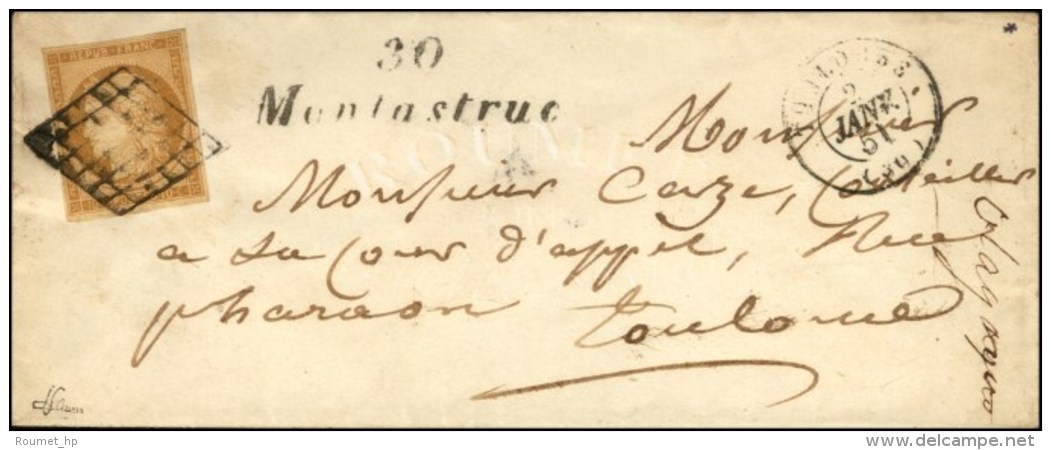 REPUB. FRANC.
30
Montastruc
TOULOUSE
2
JANV.
51
(30)
ROUMET
Monsieur
Monsieur Caze, Conseiller
a La Cour d'appel, Rue
pharaon Toulouse
Roumet_hp
delcampe.net